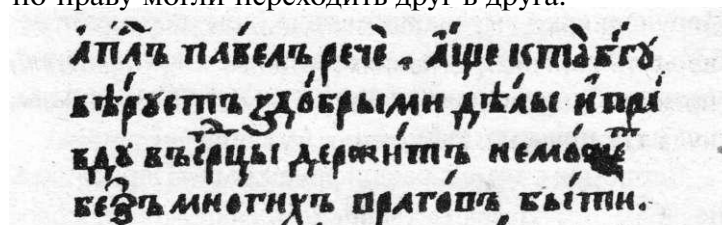 по праву могли переходить друг в друга.
а҆пⷭ҇лъ па́велъ речѐ . а҆́ще кто̀ бг҃у
вѣ́руетъ здо́брыми дѣ́лы и҆ пра́
вду въ се́рⷣцы держи́тъ немо́щеⷮ
без̾ъ мно́гихъ враговъ бы́ти.